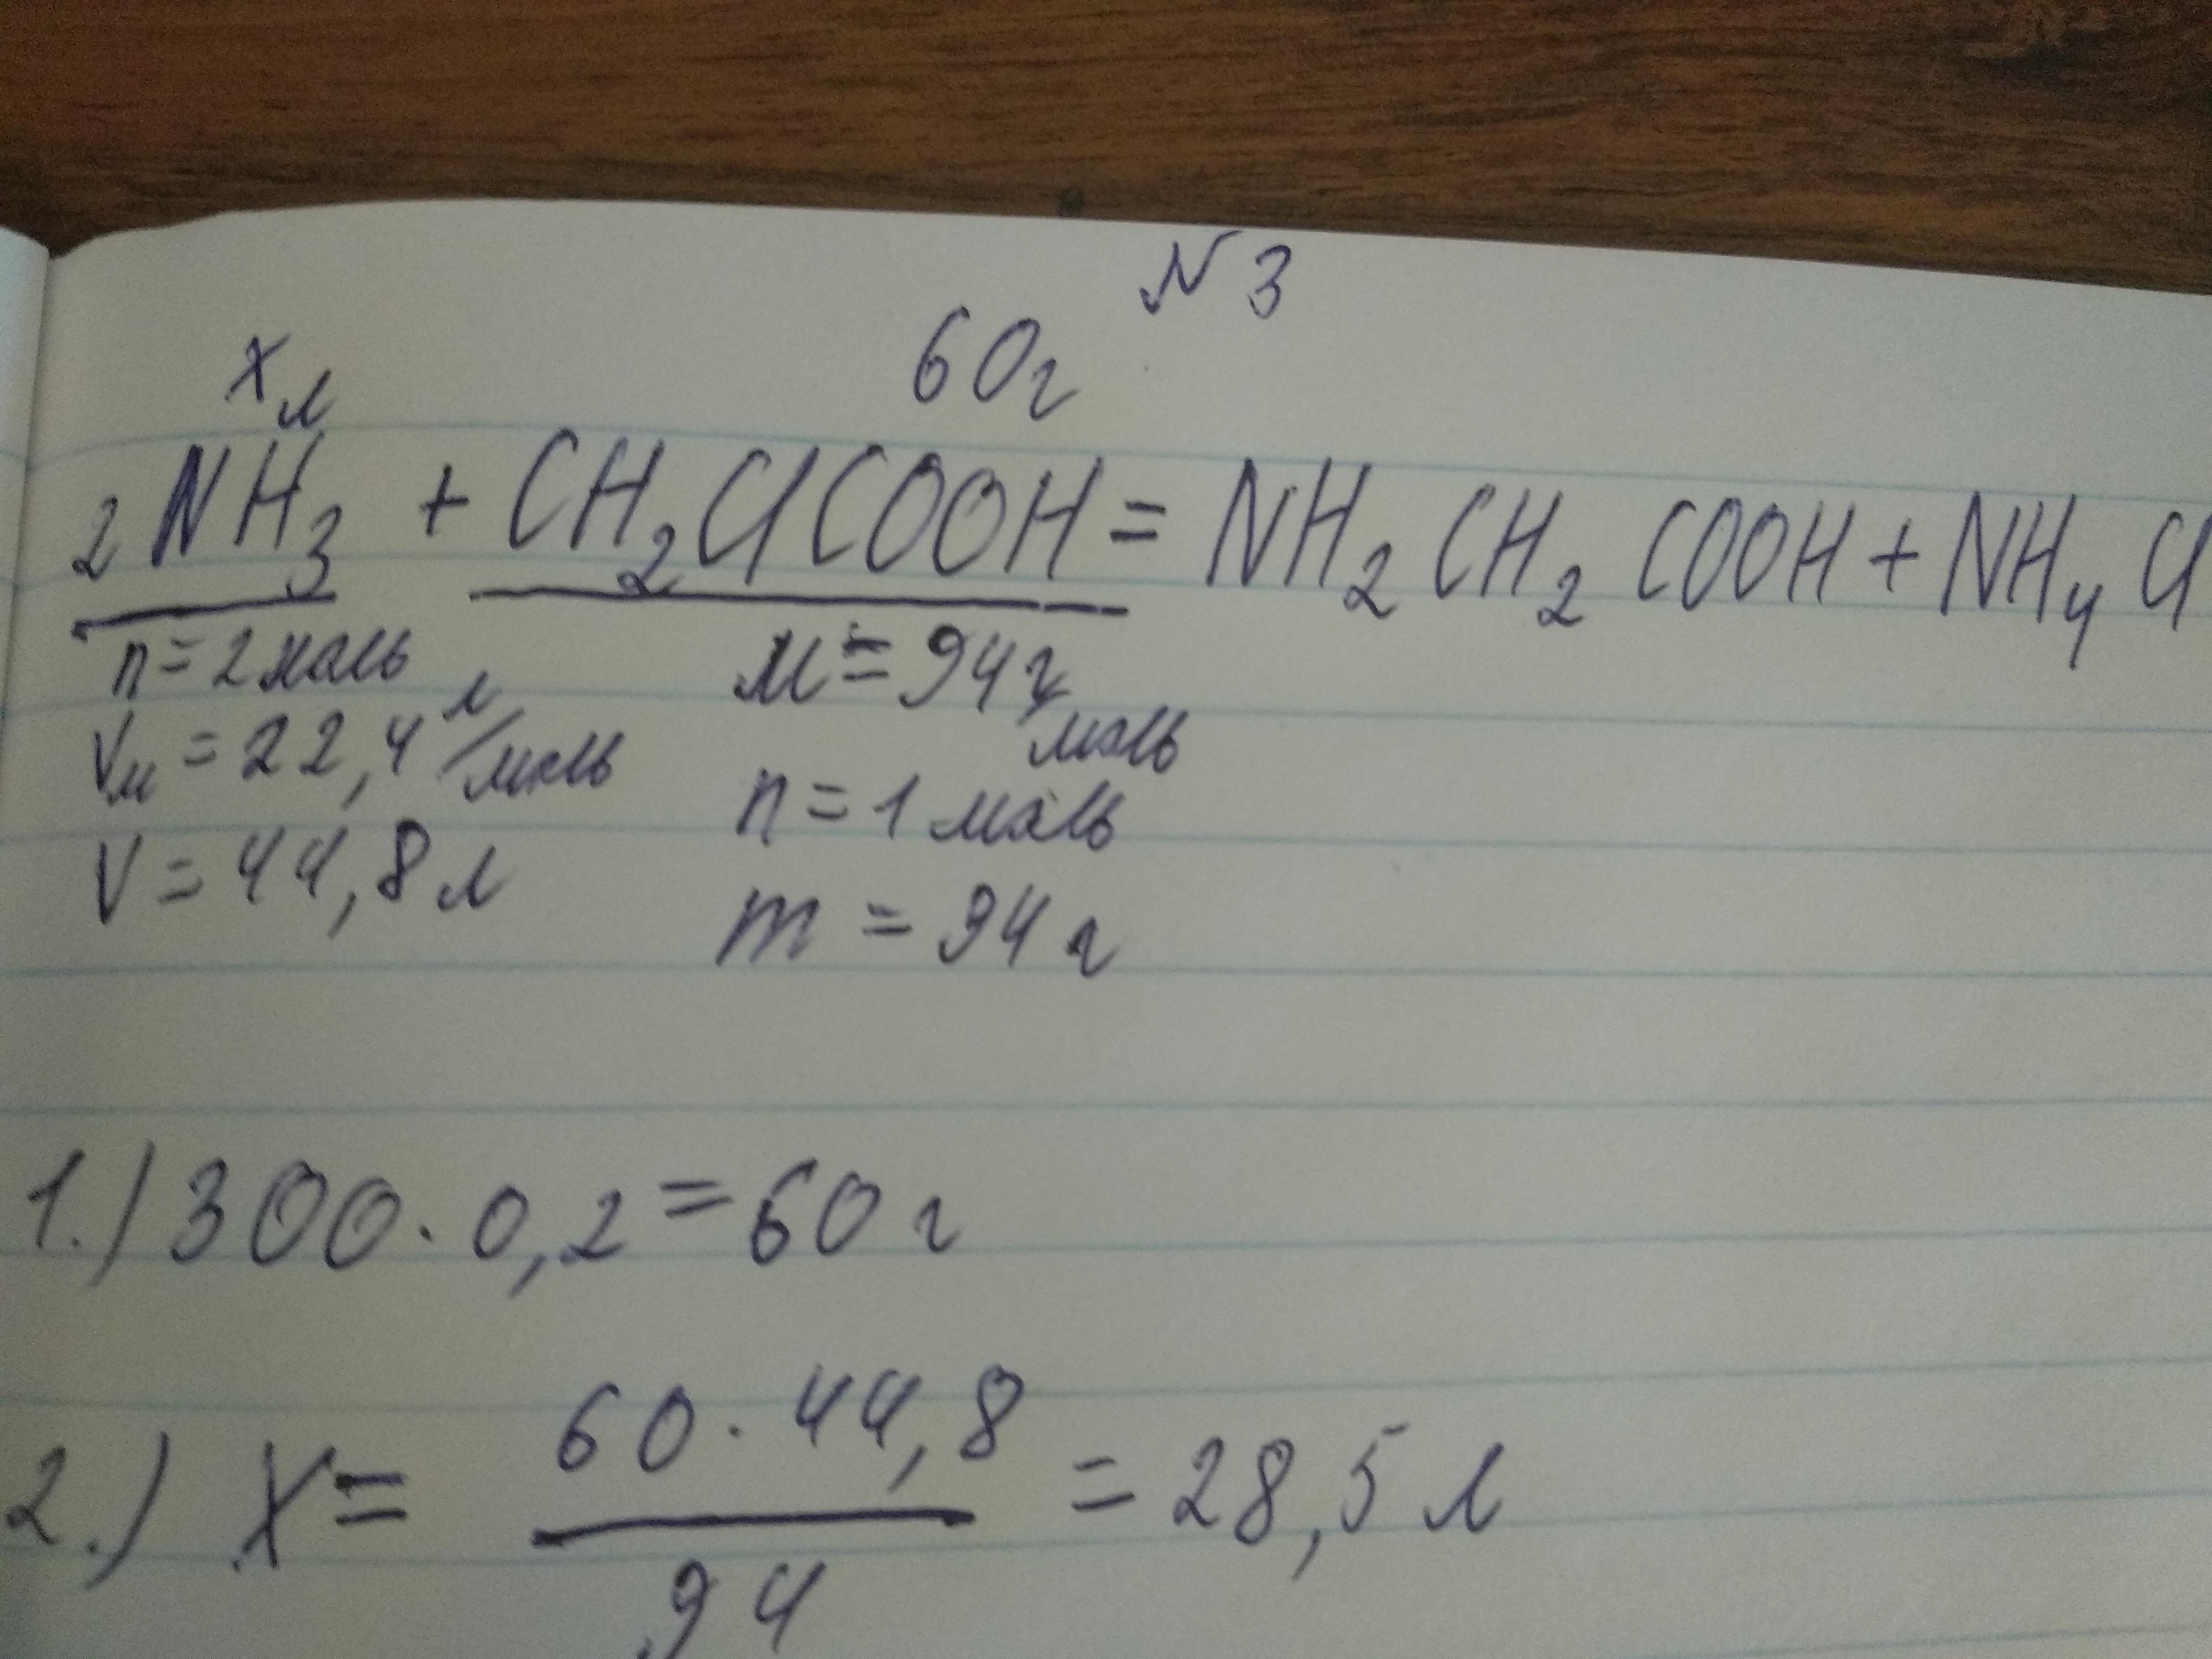 N 3
х л 60 г
2NH₃ + CH₂ClCOOH = NH₂CH₂COOH + NH₄Cl
n = 2 моль M = 94 г/моль
Vм = 22,4 л/моль n = 1 моль
V = 44,8 л m = 94 г
1.) 300 · 0,2 = 60 г
2.) X = 60 · 44,8 / 94 = 28,5 л